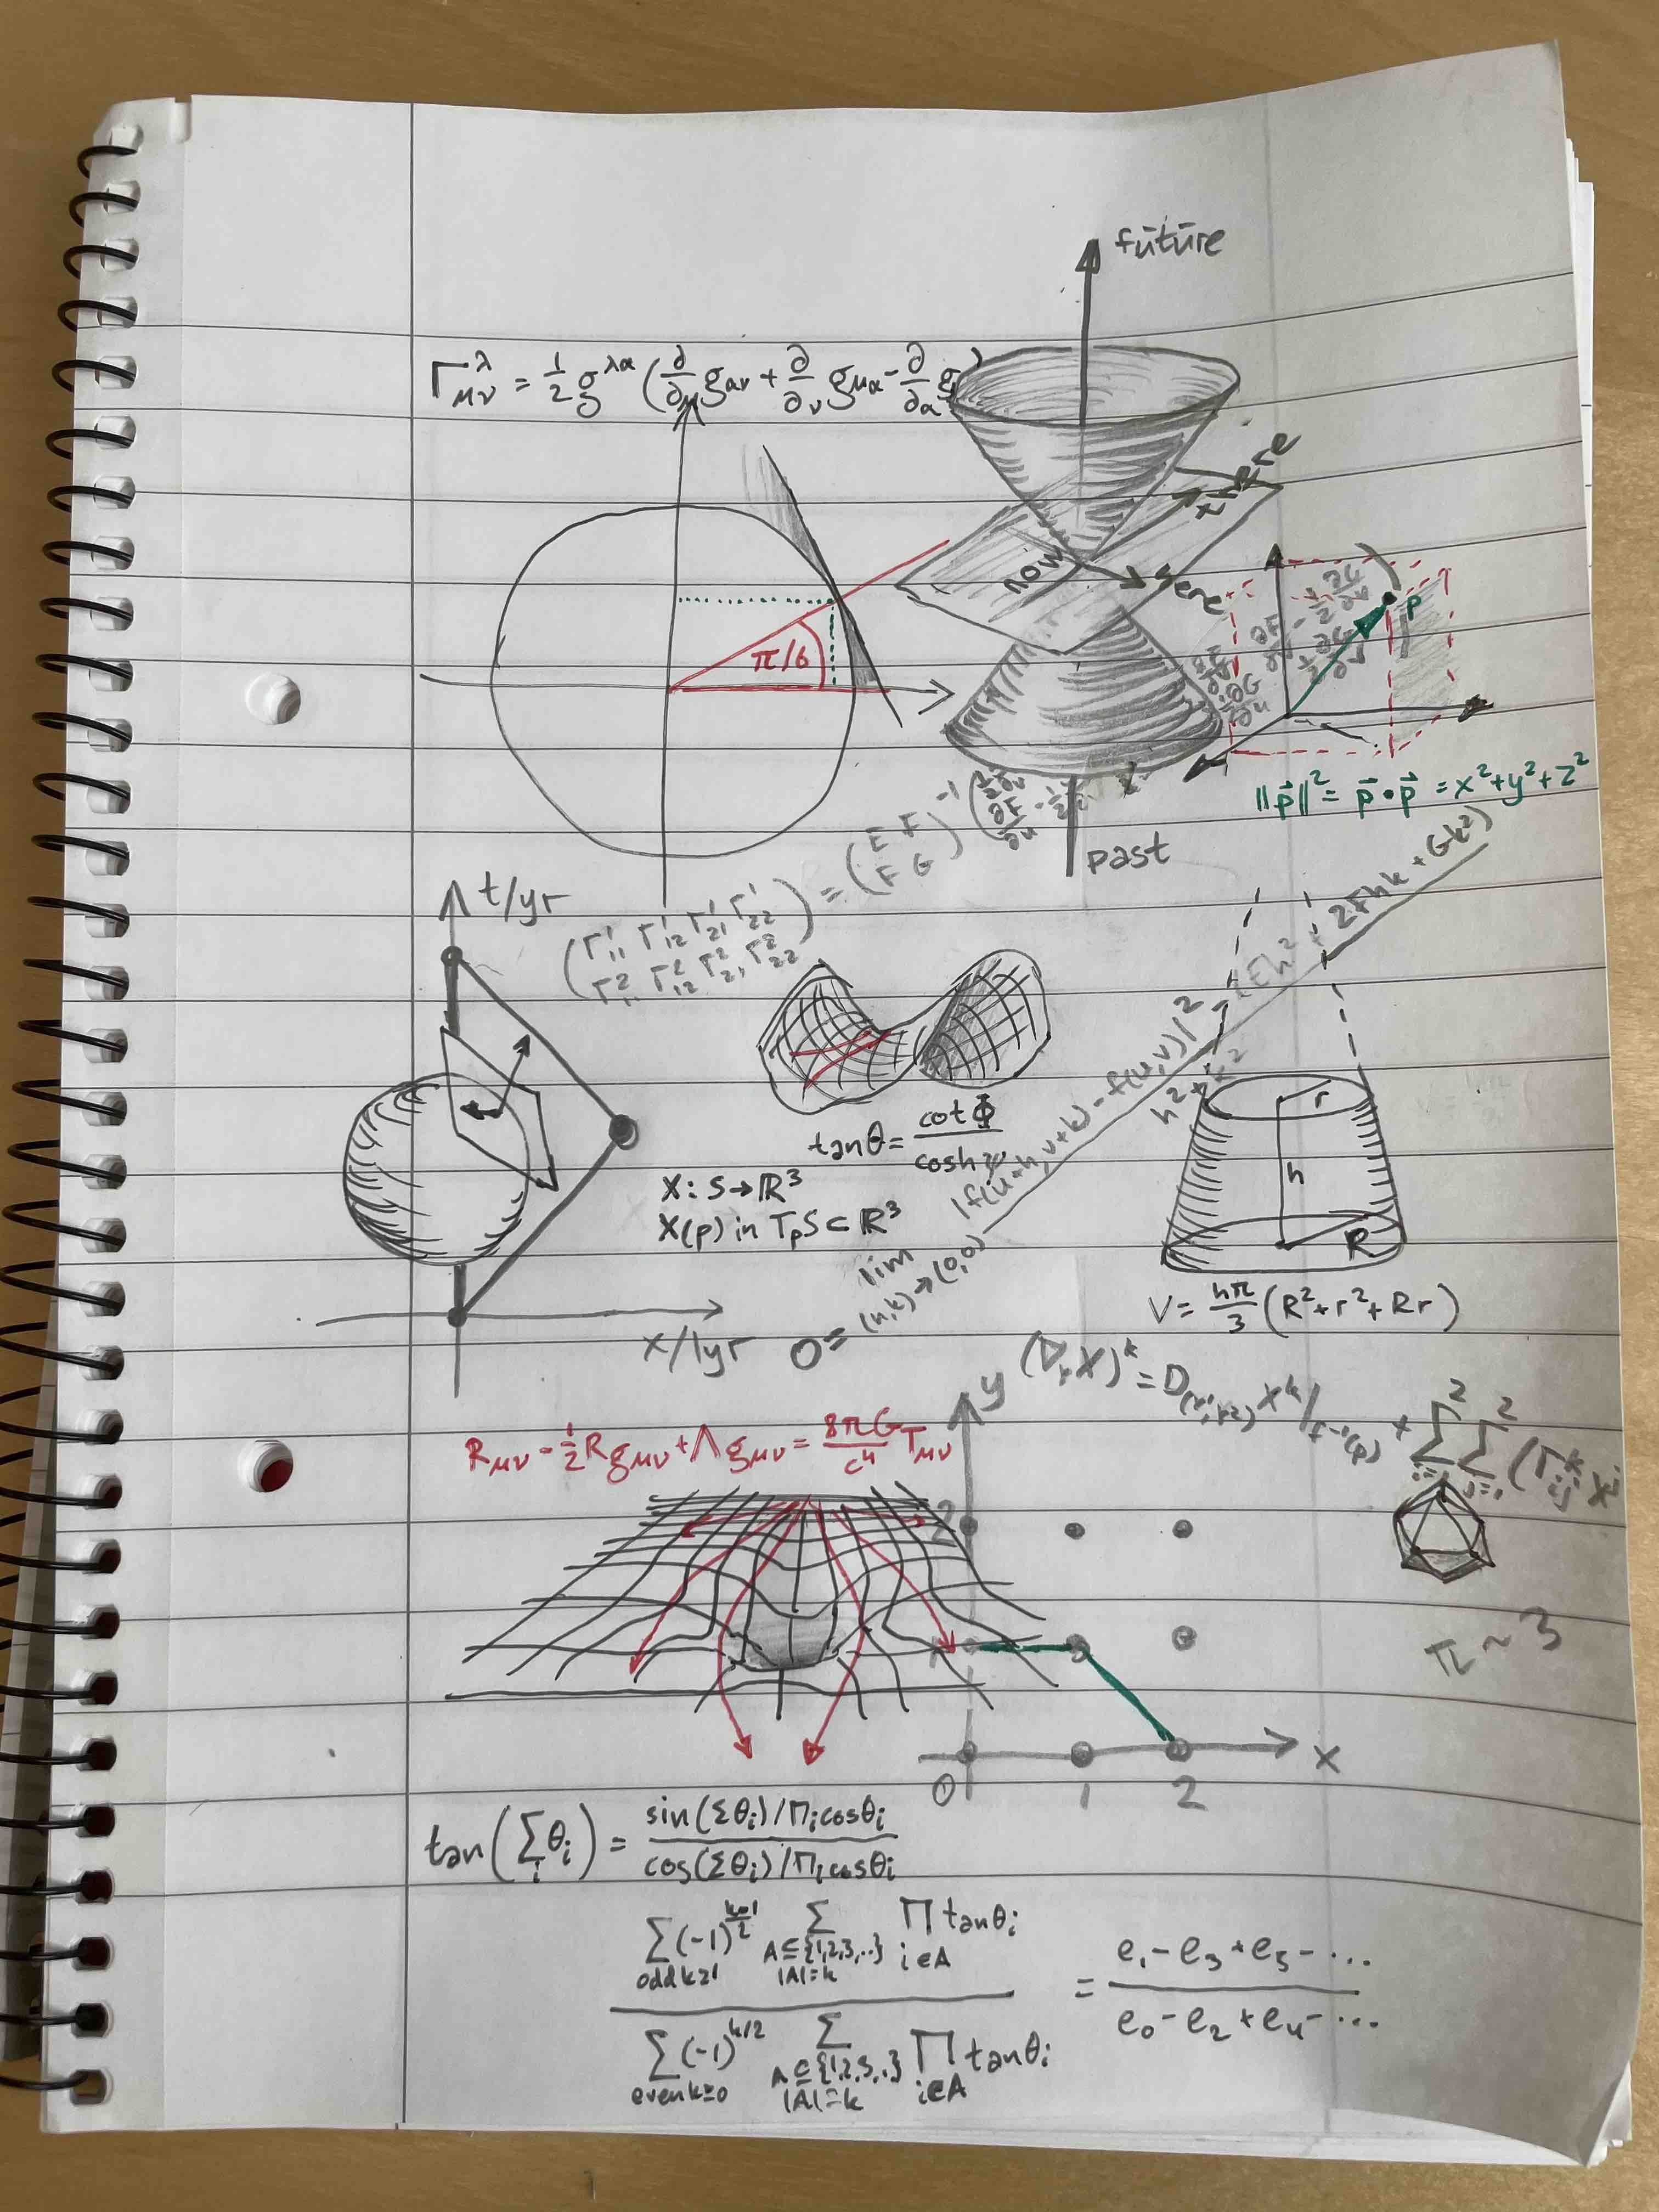 future
Γ^λ_μν = 1/2 g^λα (∂/∂μ g_αν + ∂/∂ν g_μα - ∂/∂α g
there
now
here
π/6
P
||p⃗||² = p⃗•p⃗ = x²+y²+z²
past
(Γ¹₁₁ Γ¹₁₂ Γ¹₂₁ Γ¹₂₂
Γ²₁₁ Γ²₁₂ Γ²₂₁ Γ²₂₂) = (E F
F G)⁻¹
t/yr
x/lyr
tanθ = cot Φ / cosh ψ
X: S→ℝ³
X(p) in TpS ⊂ ℝ³
0 = lim (h,k)→(0,0) |f(u+h,v+k) - f(u,v)|² - (Eh² + 2Fhk + Gk²) / h²+k²
r
h
R
V = hπ/3 (R²+r²+Rr)
X)^k = D X^k|f⁻¹(p) + Σ² Σ² (Γ^k_ij X^j
R_μν - 1/2 R g_μν + Λ g_μν = 8πG/c⁴ T_μν
y
2
1
0
1
2
x
π ~ 3
tan(Σ_i θ_i) = sin(Σθ_i)/Π_i cosθ_i / cos(Σθ_i)/Π_i cosθ_i
Σ odd k≥1 (-1)^(k-1)/2 Σ A⊆{1,2,3,..} |A|=k Π i∈A tanθ_i
Σ even k≥0 (-1)^k/2 Σ A⊆{1,2,3,..} |A|=k Π i∈A tanθ_i
= e₁-e₃+e₅-... / e₀-e₂+e₄-...